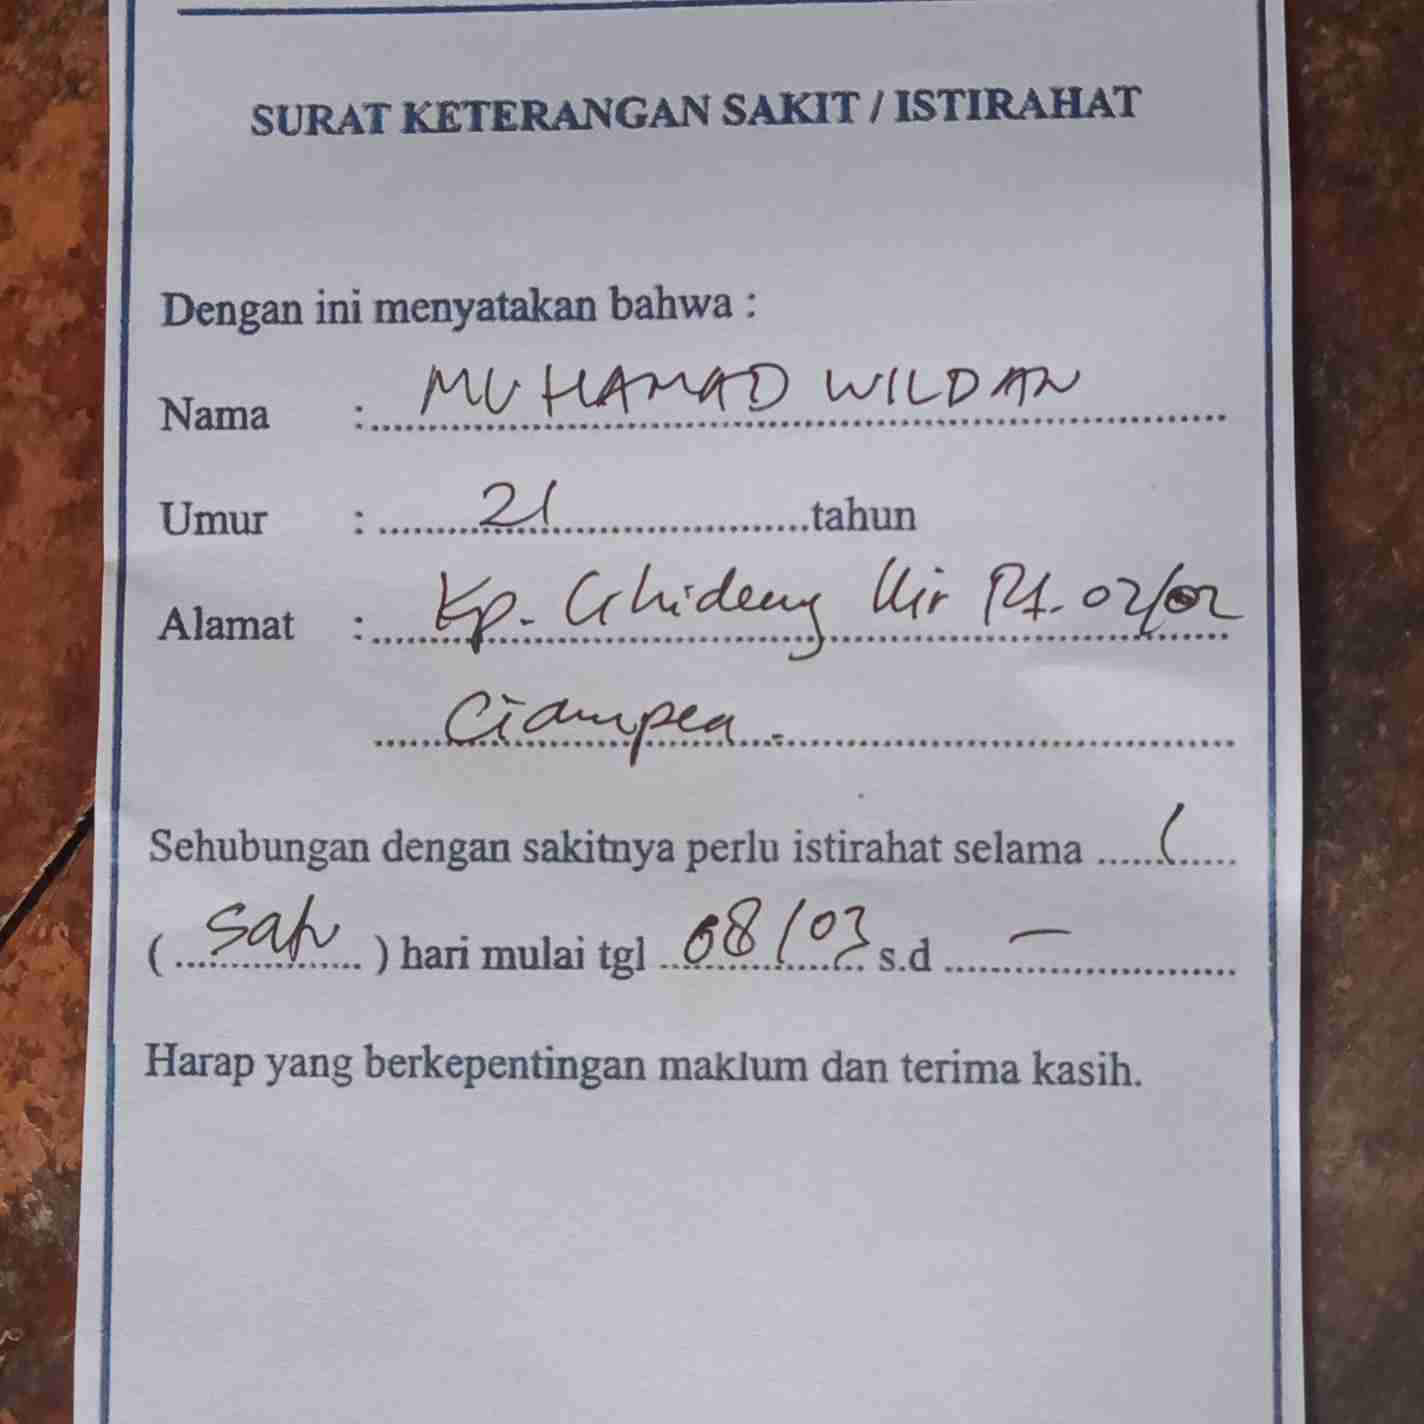 SURAT KETERANGAN SAKIT / ISTIRAHAT
Dengan ini menyatakan bahwa :
Nama : MUHAMAD WILDAN
Umur : 21 tahun
Alamat : Kp. Rt. 02/02
Ciampea
Sehubungan dengan sakitnya perlu istirahat selama 1
( satu ) hari mulai tgl 08/03 s.d —
Harap yang berkepentingan maklum dan terima kasih.